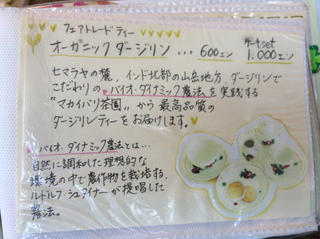 フェアトレードティー
オーガニックダージリン... 600エン ケーキset 1,000エン
ヒマラヤの麓、インド北部の山岳地方、ダージリンで
こだわりのバイオ・ダイナミック農法を実践する
"マカイバリ茶園"から最高品質の
ダージリンティーをお届けします。
バイオ・ダイナミック農法とは...
自然に調和した理想的な
環境の中で農作物を栽培する、
ルドルフ・シュタイナーが提唱した
農法。